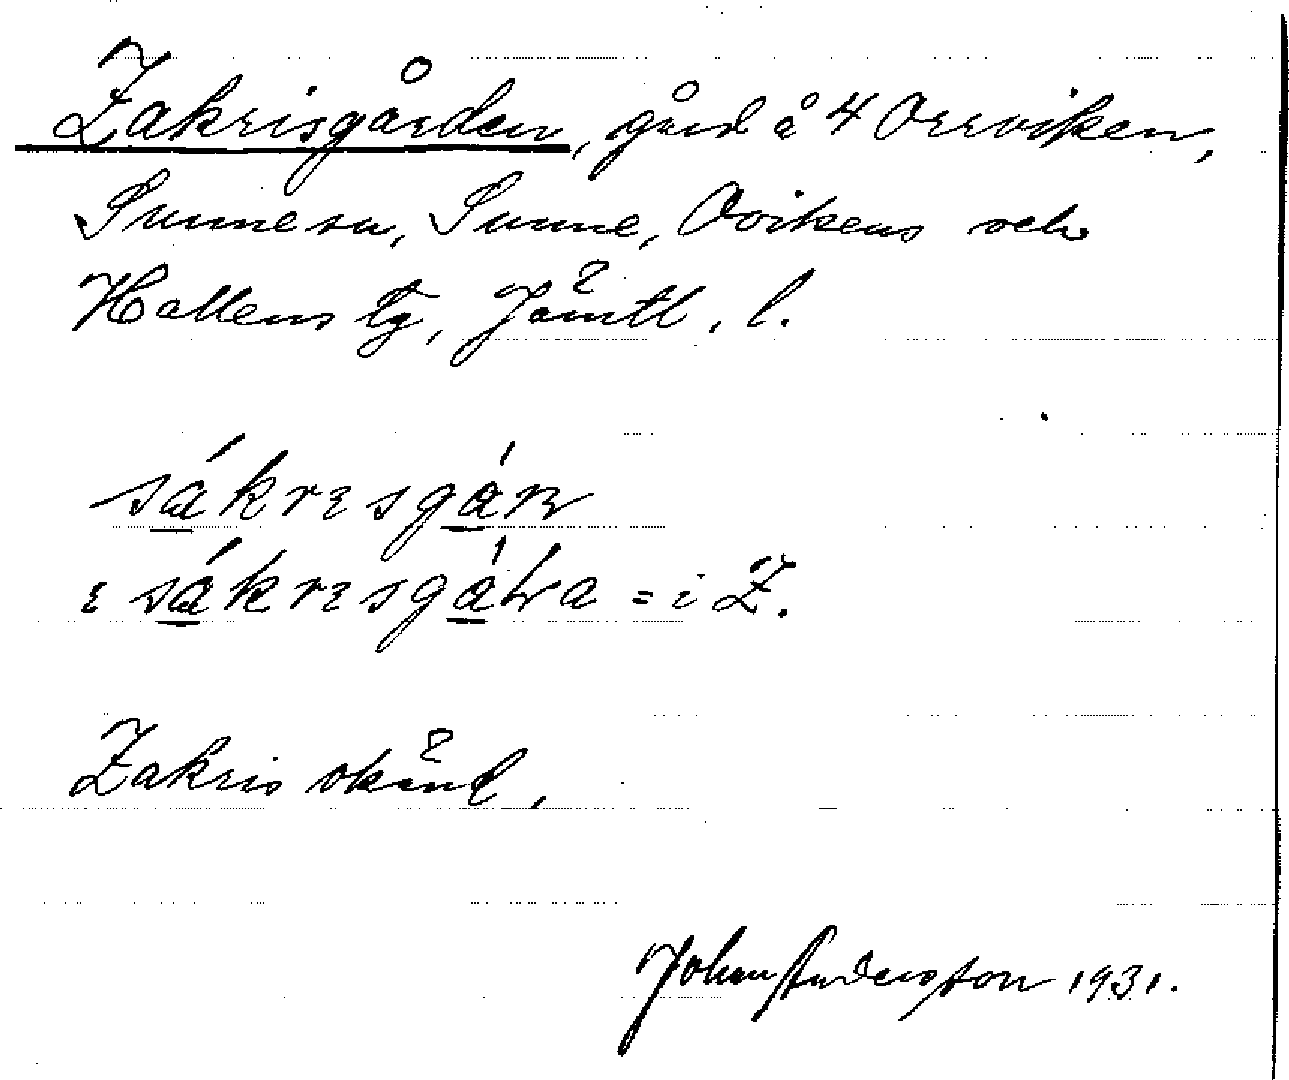 Zakrisgården, gård å 4 Orrviken,
Sunne sn, Sunne, Ovikens och
Hallens tg, Jämtl. l.
sákresgárn
e sákresgála = i Z.
Zakris okänd.
Johan Anderson 1931.